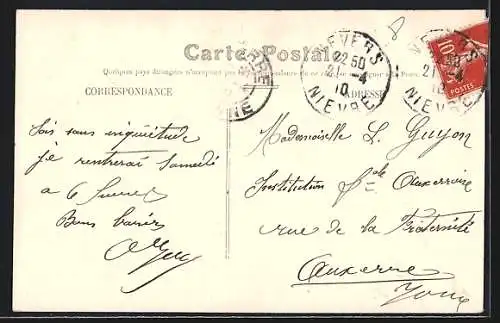 8
Carte Postale
Quelques pays étrangers n'acceptent pas
CORRESPONDANCE
ADRESSE
NEVERS
22 50
21 -4
10
NIEVRE
NEVERS
21 -4
10
NIEVRE
10
POSTES
Sois sans inquiétude
je rentrerai Samedi
a 6 heures
Bons baisers
Mademoiselle L. Guyon
Institution Auxerroise
rue de la Fraternité
Auxerre
Yonne